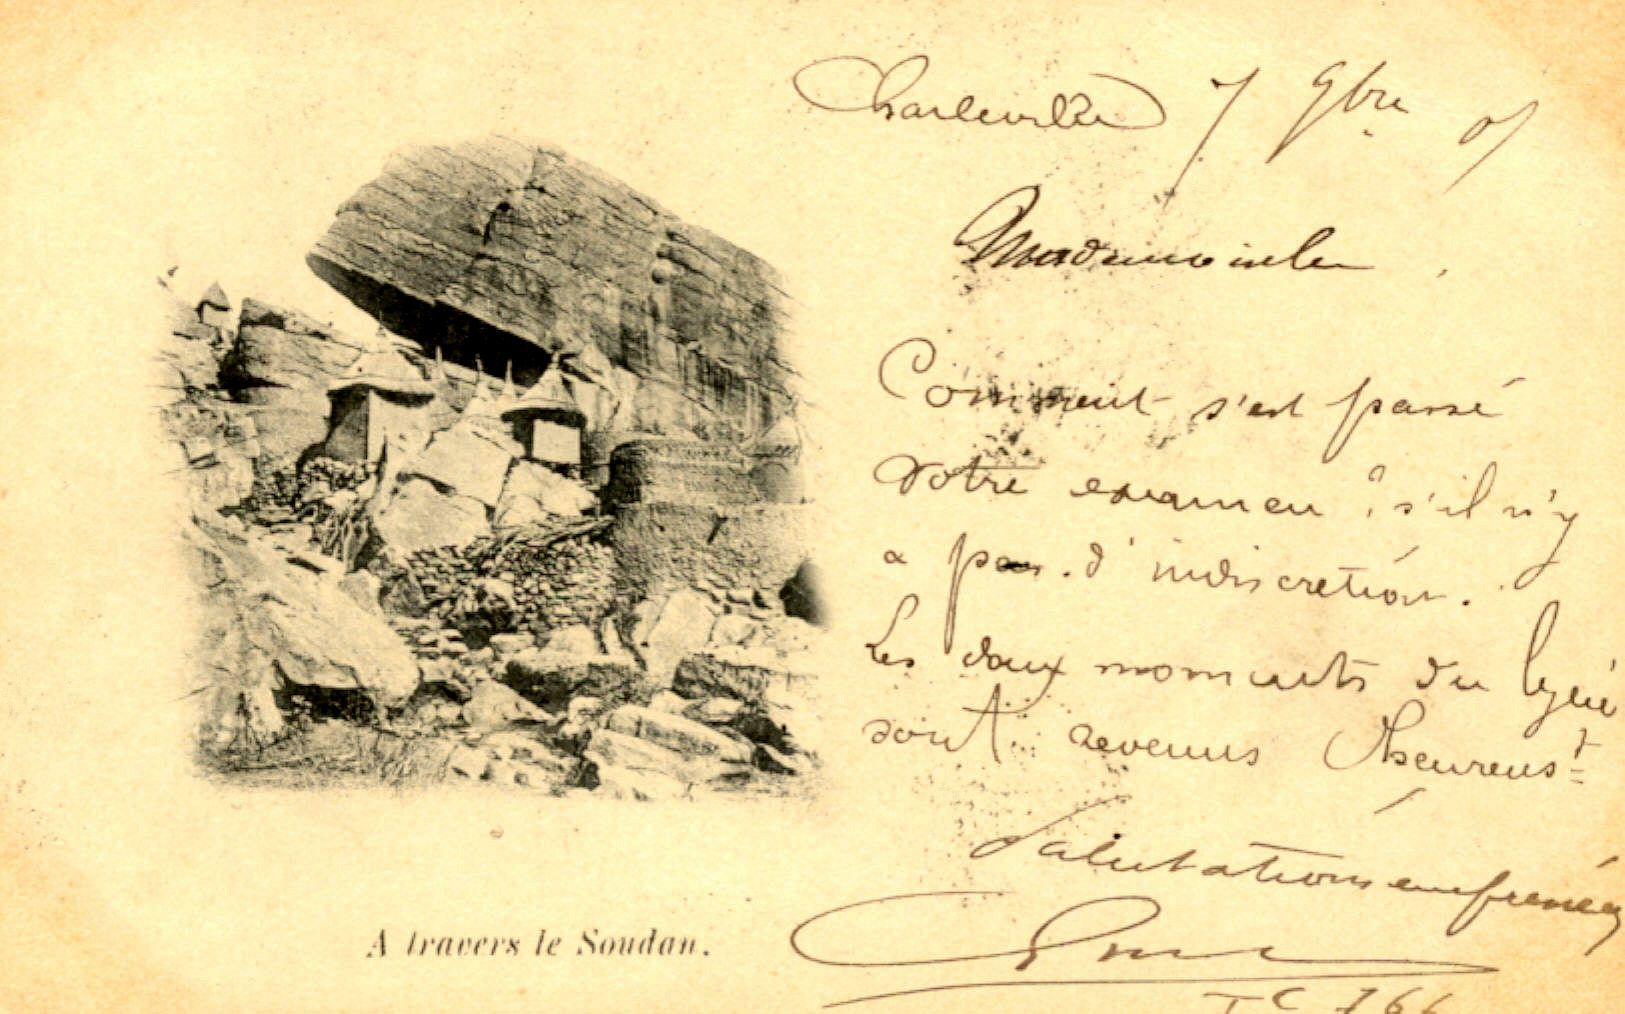 Charleville 7 9bre 05
Mademoiselle,
Comment s'est passé
votre examen ? s'il n'y
a pas d'indiscrétion.
Les deux du lycée
sont revenus
Salutations empressées
A travers le Soudan.